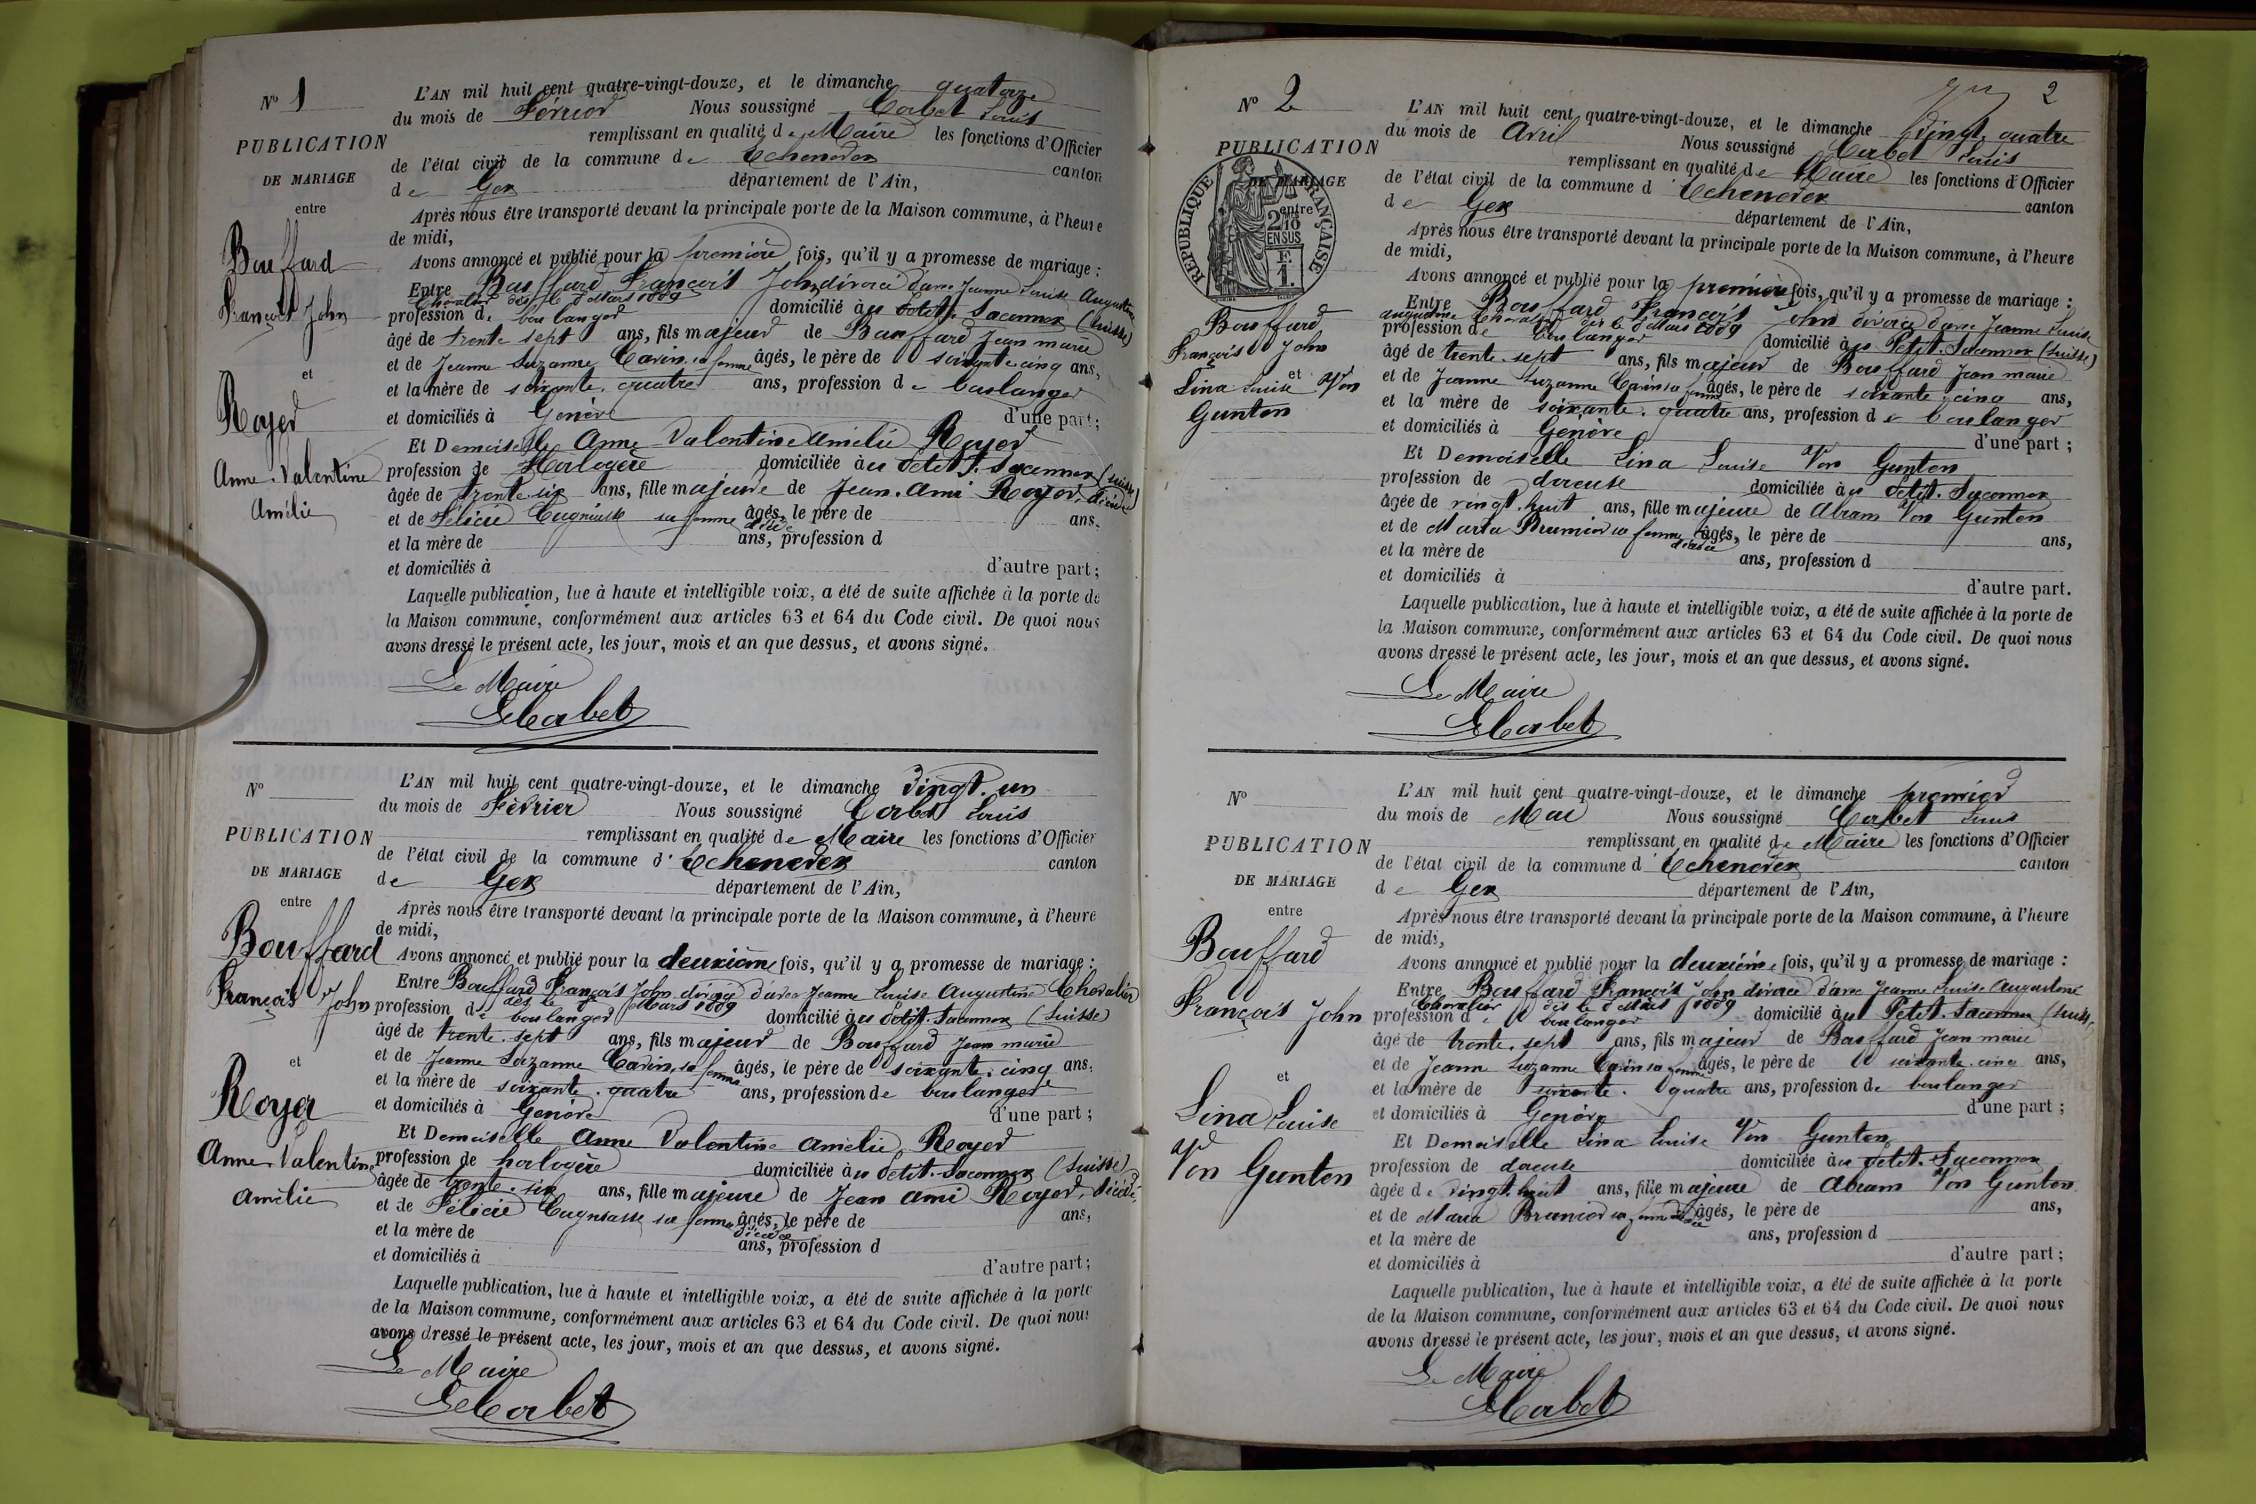 N° 1
PUBLICATION
DE MARIAGE
entre
Bouffard
François John
et
Royer
Anne-Valentine
Amélie
L'AN mil huit cent quatre-vingt-douze, et le dimanche quatorze
du mois de Février Nous soussigné Corbet Louis
remplissant en qualité de Maire les fonctions d'Officier
de l'état civil de la commune de Echenevex canton
de Gex département de l'Ain,
Après nous être transporté devant la principale porte de la Maison commune, à l'heure
de midi,
Avons annoncé et publié pour la première fois, qu'il y a promesse de mariage :
Entre Bouffard François John divorcé d'avec Jeanne Louise Augustine
Chevalier dès le 8 Mars 1889
profession de boulanger domicilié au Petit-Saconnex (Suisse)
âgé de trente sept ans, fils majeur de Bouffard Jean marie
et de Jeanne Suzanne Cavin sa femme âgés, le père de soixante cinq ans,
et la mère de soixante-quatre ans, profession de boulanger
et domiciliés à Genève d'une part;
Et Demoiselle Anne Valentine Amélie Royer
profession de Horlogère domiciliée au Petit-Saconnex (Suisse)
âgée de trente-six ans, fille majeure de Jean-Ami Royer, décédé
et de Félicie sa femme décédée âgés, le père de ans,
et la mère de ans, profession d
et domiciliés à d'autre part;
Laquelle publication, lue à haute et intelligible voix, a été de suite affichée à la porte de
la Maison commune, conformément aux articles 63 et 64 du Code civil. De quoi nous
avons dressé le présent acte, les jour, mois et an que dessus, et avons signé.
Le Maire
LCorbet
N°
PUBLICATION
DE MARIAGE
entre
Bouffard
François John
et
Royer
Anne-Valentine
Amélie
L'AN mil huit cent quatre-vingt-douze, et le dimanche vingt-un
du mois de Février Nous soussigné Corbet Louis
remplissant en qualité de Maire les fonctions d'Officier
de l'état civil de la commune d'Echenevex canton
de Gex département de l'Ain,
Après nous être transporté devant la principale porte de la Maison commune, à l'heure
de midi,
Avons annoncé et publié pour la deuxième fois, qu'il y a promesse de mariage :
Entre Bouffard François John divorcé d'avec Jeanne Louise Augustine Chevalier
dès le 8 Mars 1889
profession de boulanger domicilié au Petit-Saconnex (Suisse)
âgé de trente-sept ans, fils majeur de Bouffard Jean marie
et de Jeanne Suzanne Cavin sa femme âgés, le père de soixante-cinq ans,
et la mère de soixante-quatre ans, profession de boulanger
et domiciliés à Genève d'une part ;
Et Demoiselle Anne Valentine Amélie Royer
profession de horlogère domiciliée au Petit-Saconnex (Suisse)
âgée de trente-six ans, fille majeure de Jean Ami Royer, décédé
et de Félicie sa femme décédée âgés, le père de ans,
et la mère de ans, profession d
et domiciliés à d'autre part;
Laquelle publication, lue à haute et intelligible voix, a été de suite affichée à la porte
de la Maison commune, conformément aux articles 63 et 64 du Code civil. De quoi nous
avons dressé le présent acte, les jour, mois et an que dessus, et avons signé.
Le Maire
LCorbet
2
N° 2
PUBLICATION
DE MARIAGE
entre
RÉPUBLIQUE FRANÇAISE
2/10
EN SUS
F.
1.
Bouffard
François John
et
Lina Louise Von
Gunten
L'AN mil huit cent quatre-vingt-douze, et le dimanche vingt-quatre
du mois de Avril Nous soussigné Corbet Louis
remplissant en qualité de Maire les fonctions d'Officier
de l'état civil de la commune d'Echenevex canton
de Gex département de l'Ain,
Après nous être transporté devant la principale porte de la Maison commune, à l'heure
de midi,
Avons annoncé et publié pour la première fois, qu'il y a promesse de mariage :
Entre Bouffard François John divorcé d'avec Jeanne Louise
Augustine Chevalier dès le 8 Mars 1889
profession de boulanger domicilié au Petit-Saconnex (Suisse)
âgé de trente-sept ans, fils majeur de Bouffard Jean marie
et de Jeanne Suzanne Cavin sa femme âgés, le père de soixante-cinq ans,
et la mère de soixante-quatre ans, profession de boulanger
et domiciliés à Genève d'une part ;
Et Demoiselle Lina Louise Von Gunten
profession de doreuse domiciliée au Petit-Saconnex
âgée de vingt-huit ans, fille majeure de Abram Von Gunten
et de Maria Brunier sa femme décédée âgés, le père de ans,
et la mère de ans, profession d
et domiciliés à d'autre part.
Laquelle publication, lue à haute et intelligible voix, a été de suite affichée à la porte de
la Maison commune, conformément aux articles 63 et 64 du Code civil. De quoi nous
avons dressé le présent acte, les jour, mois et an que dessus, et avons signé.
Le Maire
LCorbet
N°
PUBLICATION
DE MARIAGE
entre
Bouffard
François John
et
Lina Louise
Von Gunten
L'AN mil huit cent quatre-vingt-douze, et le dimanche premier
du mois de Mai Nous soussigné Corbet Louis
remplissant en qualité de Maire les fonctions d'Officier
de l'état civil de la commune d'Echenevex canton
de Gex département de l'Ain,
Après nous être transporté devant la principale porte de la Maison commune, à l'heure
de midi,
Avons annoncé et publié pour la deuxième fois, qu'il y a promesse de mariage :
Entre Bouffard François John divorcé d'avec Jeanne Louise Augustine
Chevalier dès le 8 Mars 1889
profession de boulanger domicilié au Petit-Saconnex (Suisse)
âgé de trente-sept ans, fils majeur de Bouffard Jean marie
et de Jeanne Suzanne Cavin sa femme âgés, le père de soixante-cinq ans,
et la mère de soixante-quatre ans, profession de boulanger
et domiciliés à Genève d'une part ;
Et Demoiselle Lina Louise Von Gunten
profession de doreuse domiciliée au Petit-Saconnex
âgée de vingt-huit ans, fille majeure de Abram Von Gunten
et de Maria Brunier sa femme décédée âgés, le père de ans,
et la mère de ans, profession d
et domiciliés à d'autre part ;
Laquelle publication, lue à haute et intelligible voix, a été de suite affichée à la porte
de la Maison commune, conformément aux articles 63 et 64 du Code civil. De quoi nous
avons dressé le présent acte, les jour, mois et an que dessus, et avons signé.
Le Maire
LCorbet